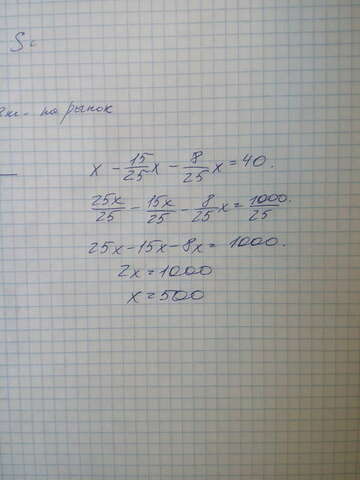 на рынок
x - 15/25 x - 8/25 x = 40.
25x/25 - 15x/25 - 8/25 x = 1000/25.
25x - 15x - 8x = 1000.
2x = 1000
x = 500